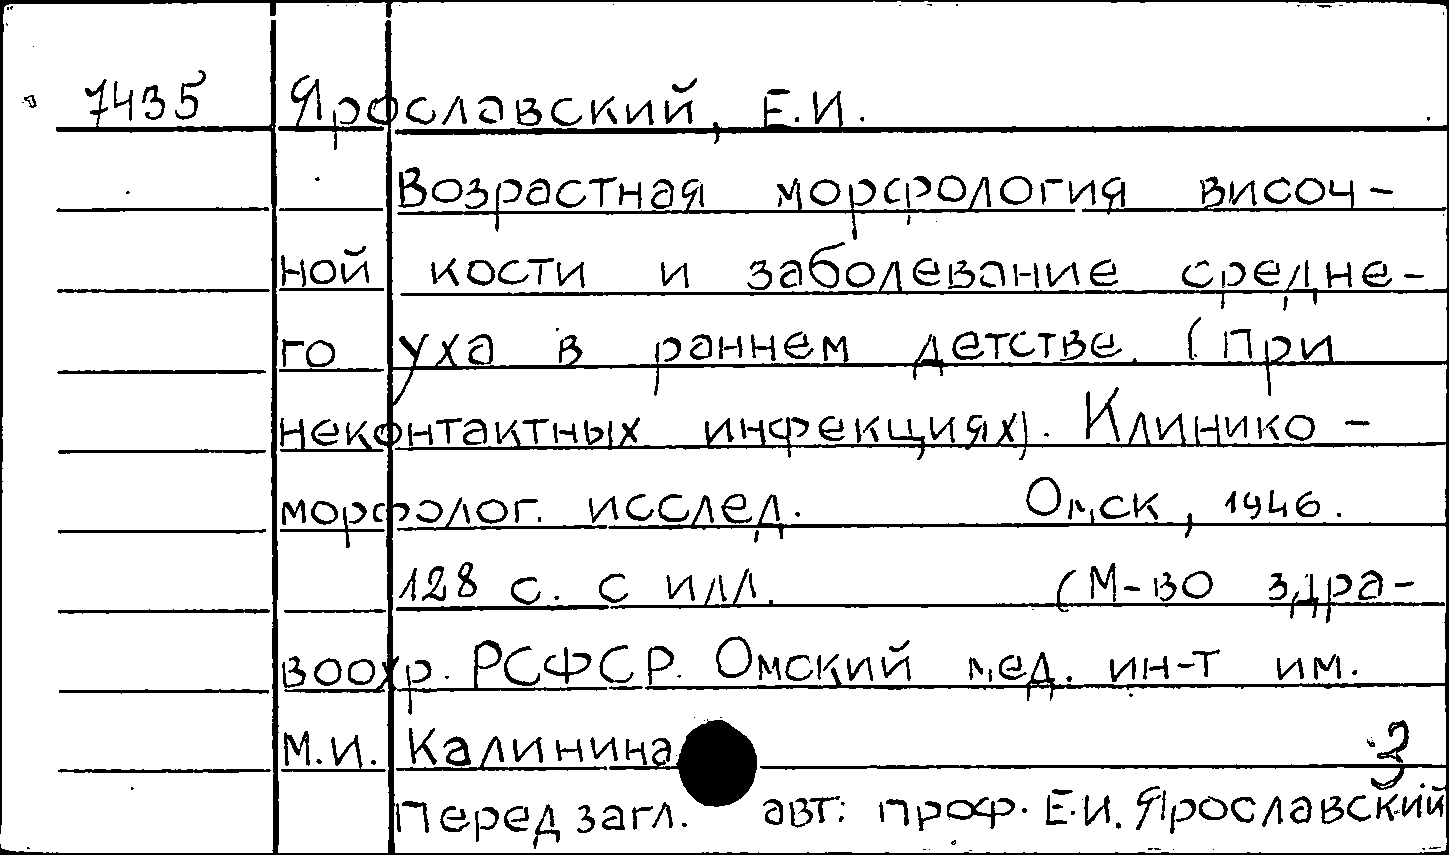 7435 Ярославский, Е.И.
Возрастная морфология височ-
ной кости и заболевание средне-
го уха в раннем детстве. (При
неконтактных инфекциях). Клинико-
морфолог. исслед. Омск, 1946.
128 с. с илл. (М-во здра-
воохр. РСФСР. Омский мед. ин-т им.
М.И. Калинина
3
Перед загл. авт: проф. Е.И. Ярославский